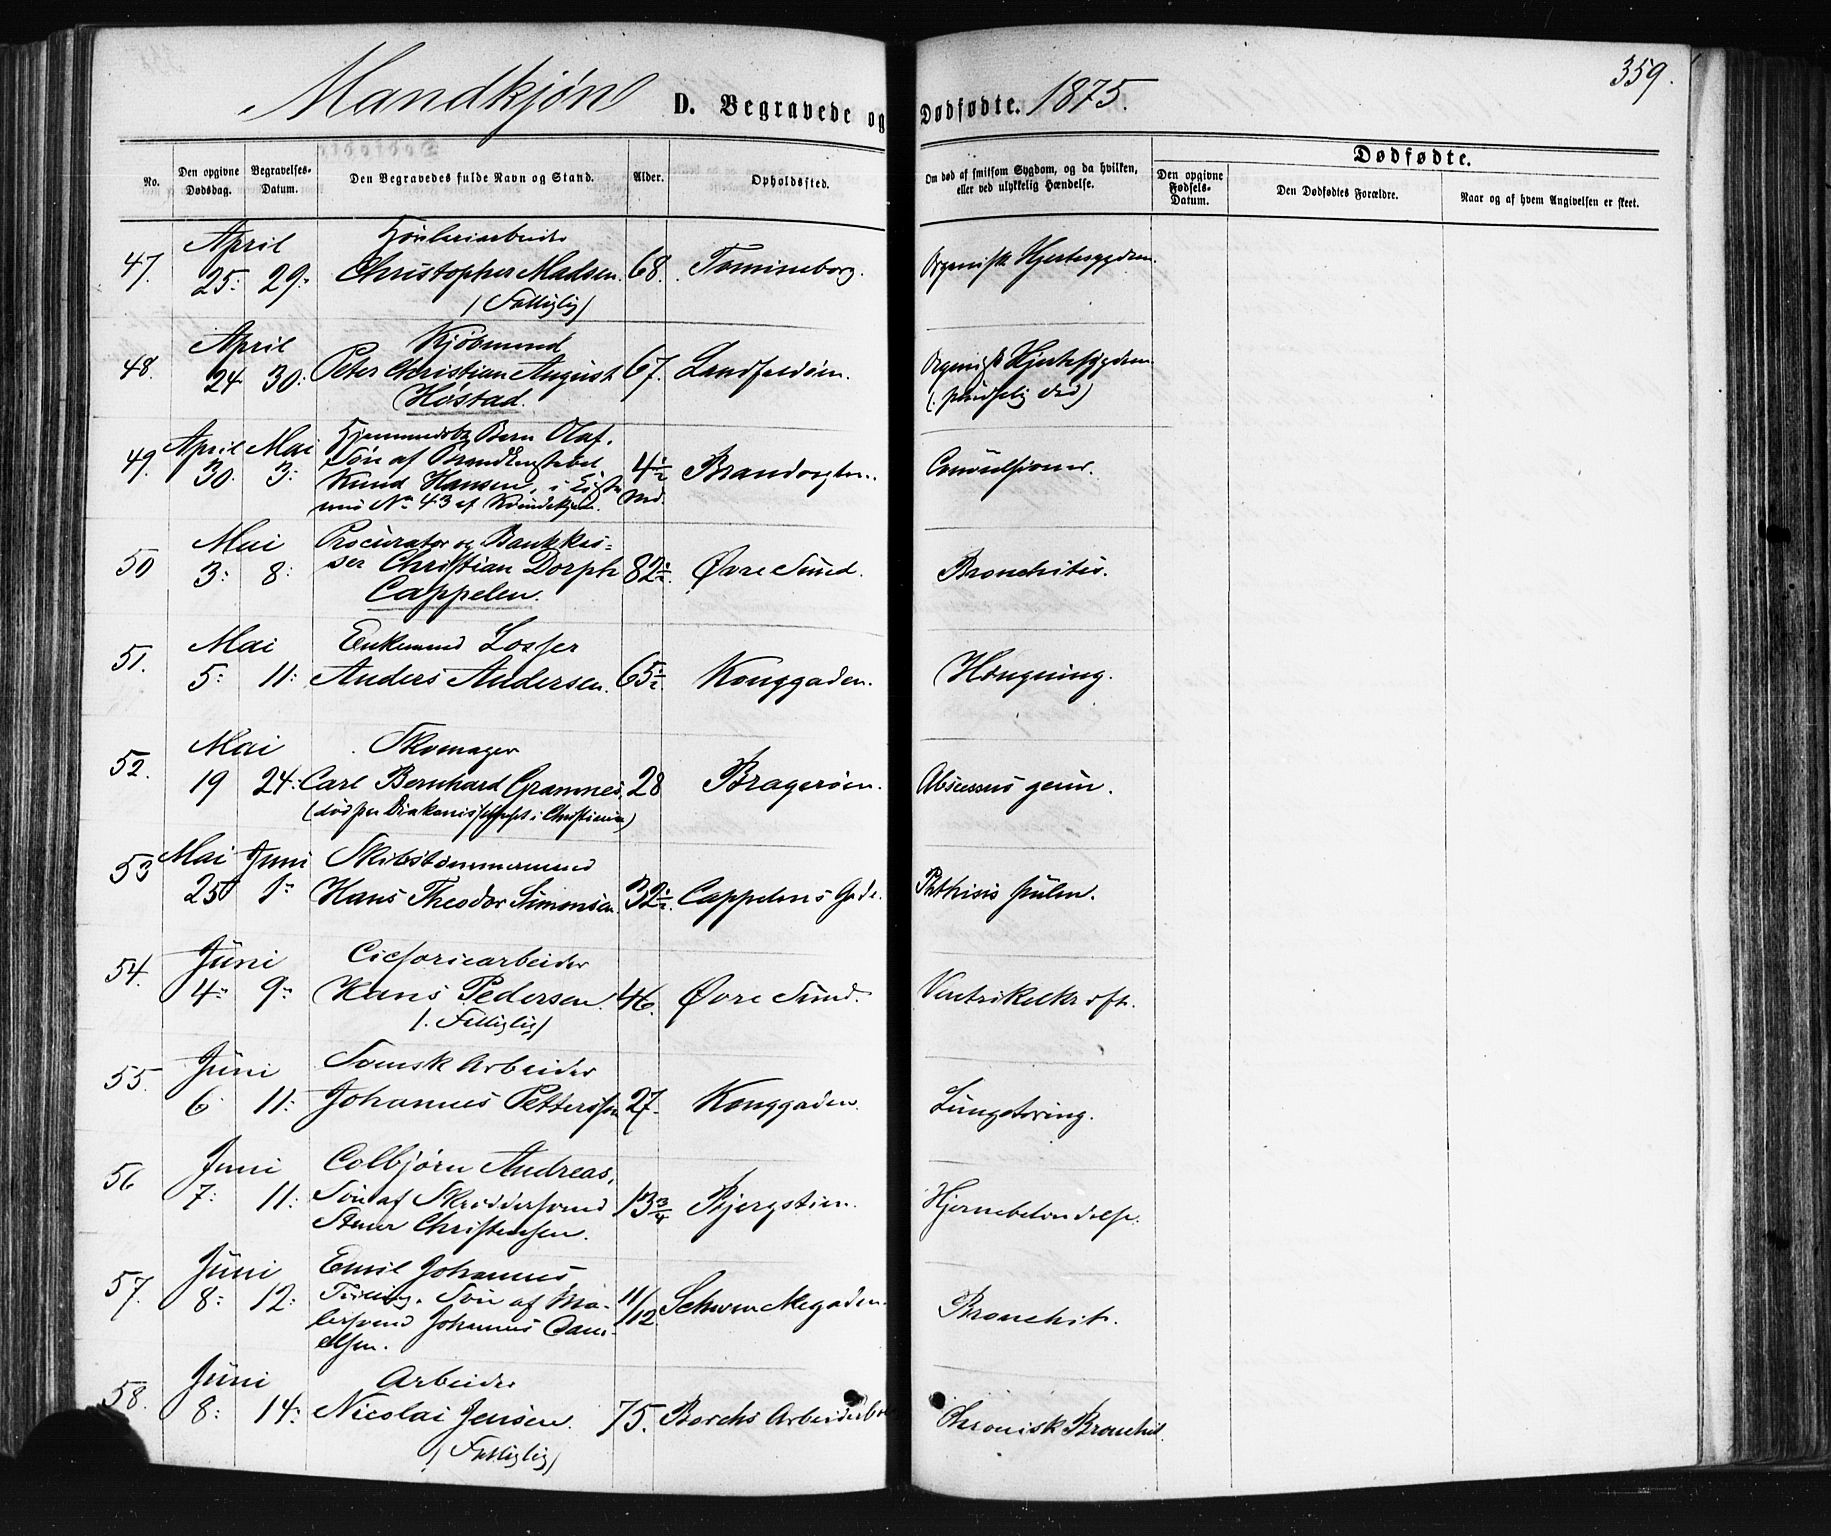 Mandkjøn D. Begravede og Dødfødte. 1875. 359.
Dødfødte.
No. Den opgivne Dødsdag. Begravelses-Datum. Den Begravedes fulde Navn og Stand. Alder. Opholdssted. Om død af smitsom Sygdom, og da hvilken, eller ved ulykkelig Hændelse. Den opgivne Fødsels-Datum. Den Dødfødtes Forældre. Naar og af hvem Angivelsen er skeet.
April
47. 25: 29: Christopher Madsen. 68. Organisk Hjertesygdom.
(Fattiglig)
April Kjøbmand
48. 24 30: Peter Christian August 67. Landfaldøen. Organisk Hjertesygdom
Høstad. (: pludselig Død)
April Mai Hjemmedøbt Barn Olaf,
49. 30. 3: Søn af Brandkonstabel 4½ Md. Brandvagten. Convulsioner.
Knud Hansen, i
No 43 af Kvindekjøn.
Mai Procurator og Bankkas=
50 3: 8: ser Christian Dorph 82½. Øvre Sund. Bronchitis.
Cappelen.
Mai Enkemand Losser
51. 5: 11: Anders Andersen. 65½ Konggaden. Hængning.
Mai Skomager
52. 19 24: Carl Bernhard Gramnes, 28 Bragerøen. Abscessus genu.
(død paa Diakonissehuset i Christiania)
Mai Juni Skibstømmermand
53 25 1: Hans Theodor Simonsen 32½. Cappelens Gade. Phthisis pulm.
Juni Cichoriearbeider
54. 4: 9: Hans Pedersen. 46. Øvre Sund. Ventrikelkræft.
(: Fattiglig)
Juni Svensk Arbeider
55. 6 11: Johannes Pettersson 27. Konggaden. Lungetæring.
Juni Colbjørn Andreas,
56 7: 11: Søn af Skræddersvend 13¾ Bjergstien. Hjernebetændelse.
Christensen.
Juni Emil Johannes
57. 8: 12: Søn af Ma- 11/12 Schwenckegaden. Bronchit.
lersvend Johannes Dani-
elsen.
Juni Arbeider
58. 8: 14: Nicolai Jensen. 75. Borchs Arbeiderbol Chronisk Bronchit.
(Fattiglig)